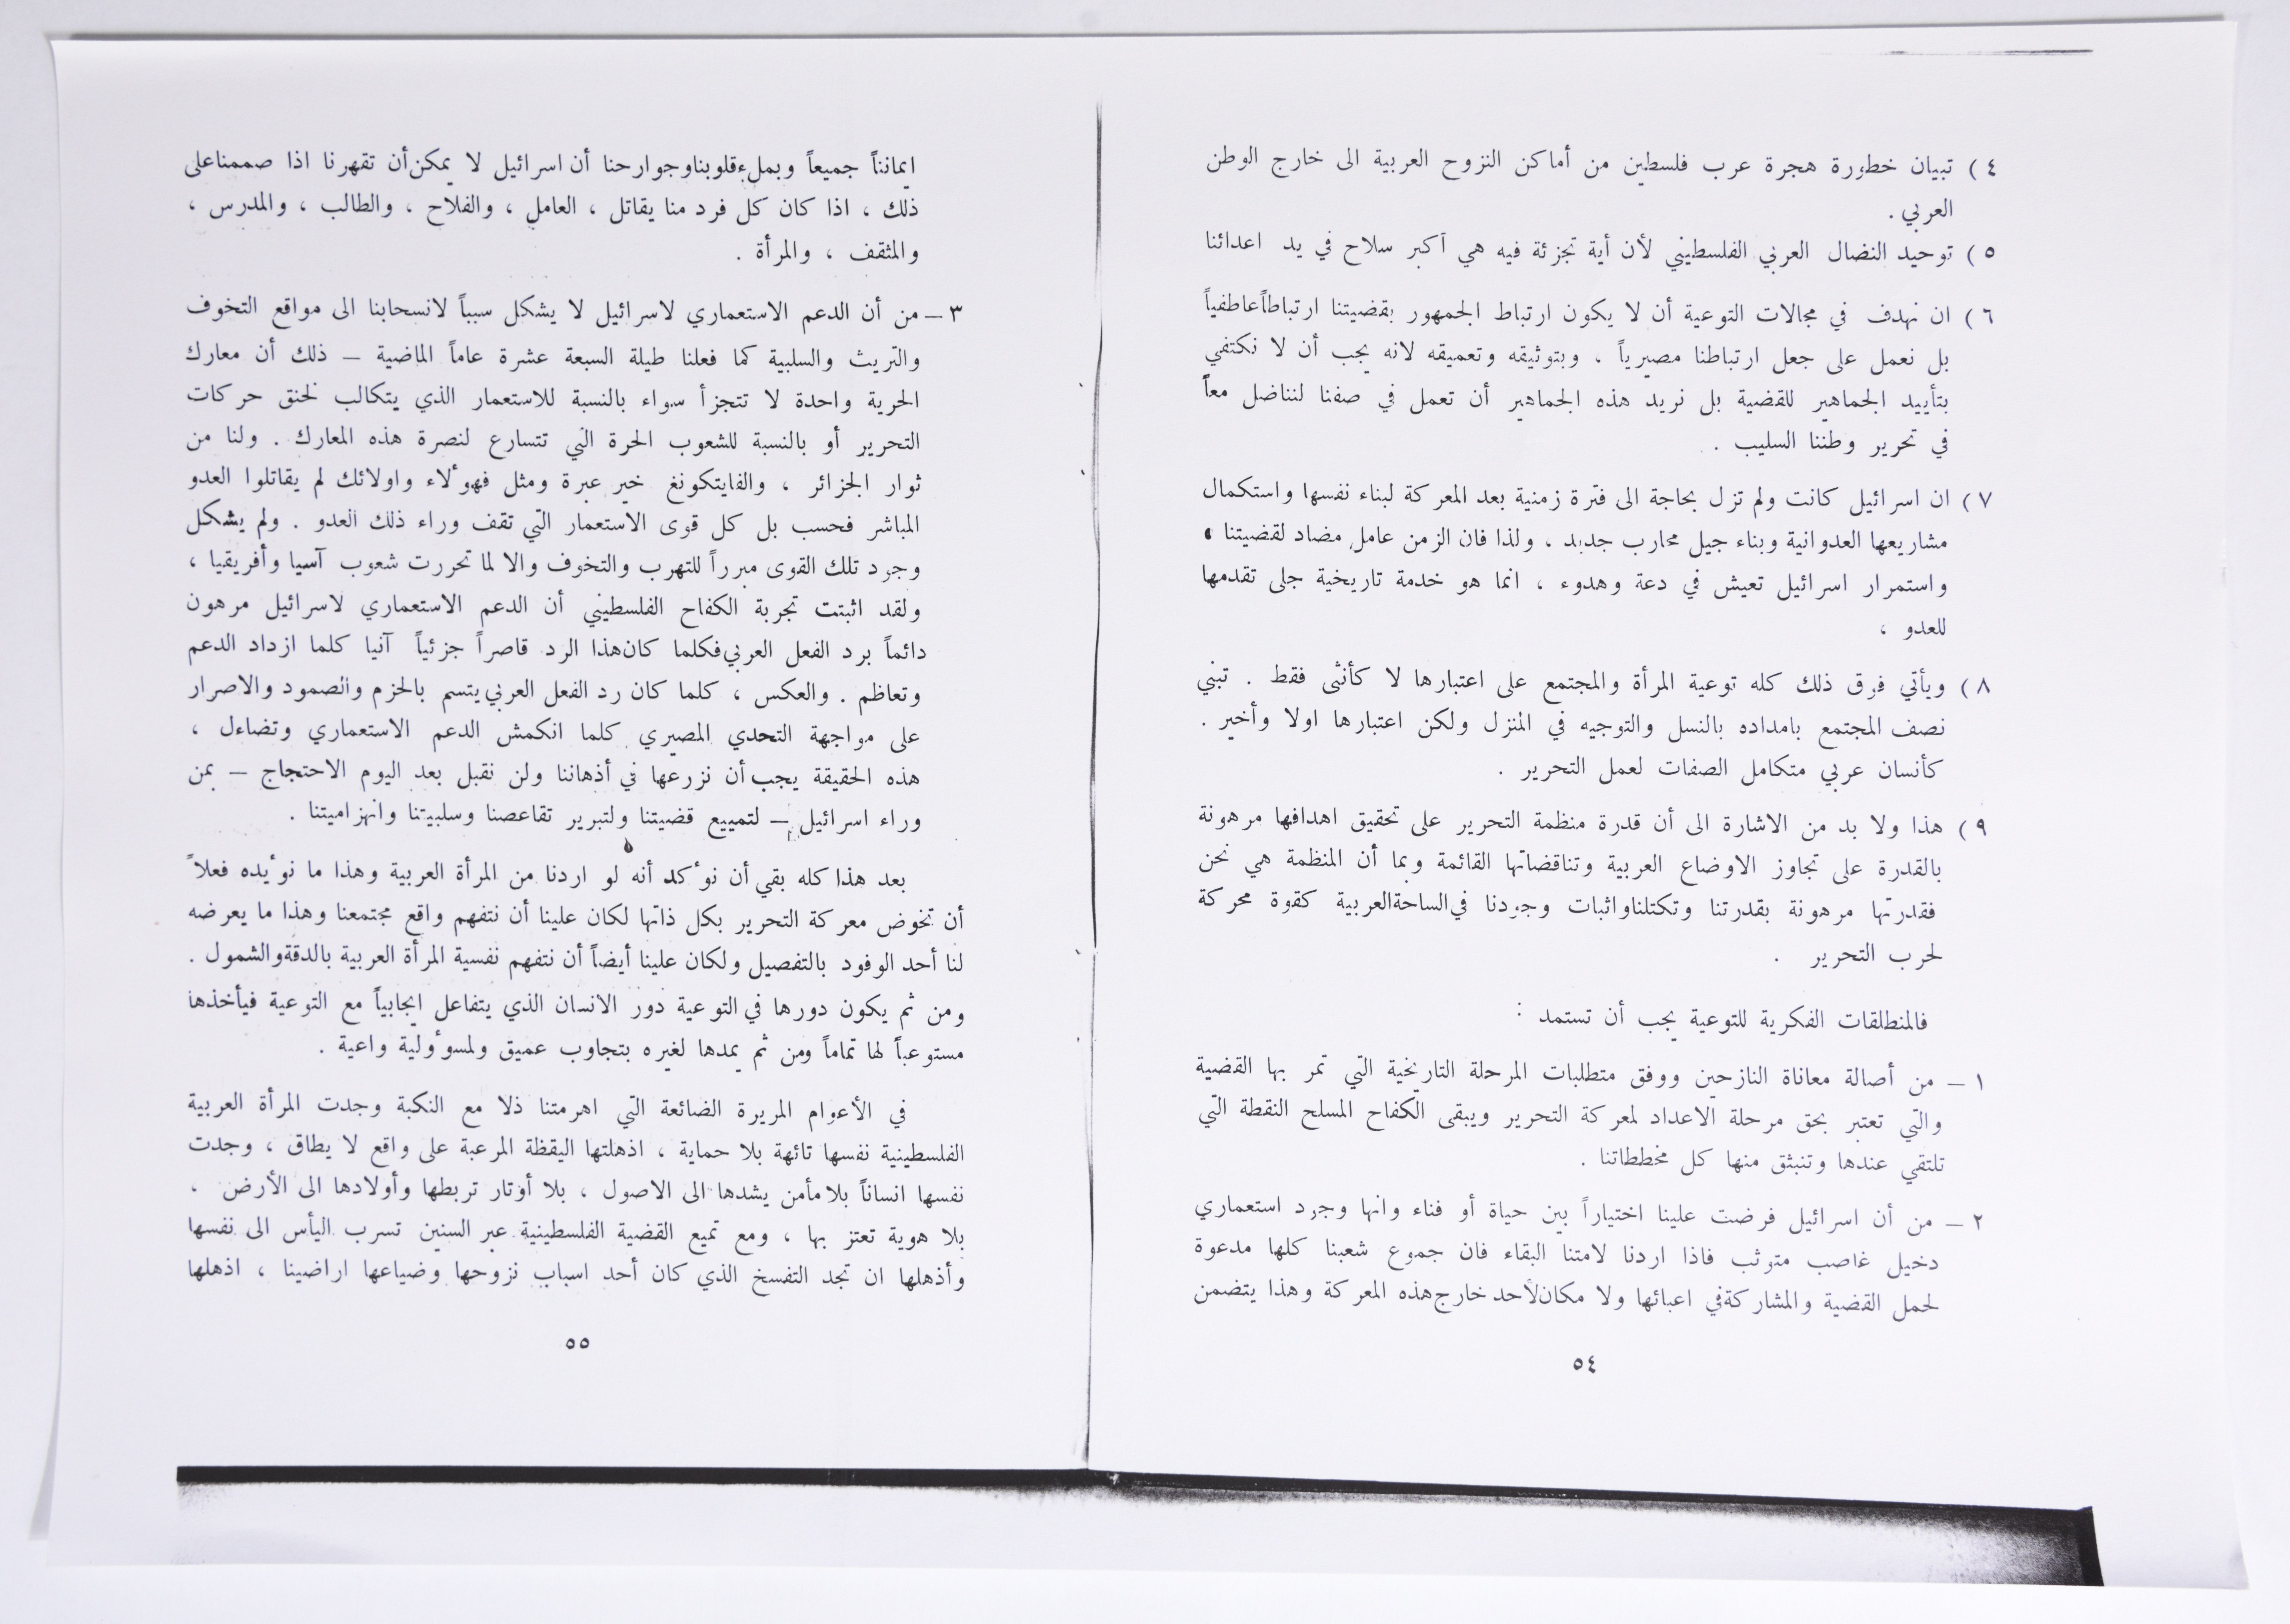 ٤ ) تبيان خطورة هجرة عرب فلسطين من أماكن النزوح العربية الى خارج الوطن
العربي .
٥ ) توحيد النضال العربي الفلسطيني لأن أية تجزئة فيه هي أكبر سلاح في يد اعدائنا
٦ ) ان نهدف في مجالات التوعية أن لا يكون ارتباط الجمهور بقضيتنا ارتباطاً عاطفياً
بل نعمل على جعل ارتباطنا مصيرياً ، وبتوثيقه وتعميقه لانه يجب أن لا نكتفي
بتأييد الجماهير للقضية بل نريد هذه الجماهير أن تعمل في صفنا لنناضل معاً
في تحرير وطننا السليب .
٧ ) ان اسرائيل كانت ولم تزل بحاجة الى فترة زمنية بعد المعركة لبناء نفسها واستكمال
مشاريعها العدوانية وبناء جيل محارب جديد ، ولذا فان الزمن عامل مضاد لقضيتنا ،
واستمرار اسرائيل تعيش في دعة وهدوء ، انما هو خدمة تاريخية جلى تقدمها
للعدو ،
٨ ) ويأتي فوق ذلك كله توعية المرأة والمجتمع على اعتبارها لا كأنثى فقط . تبني
نصف المجتمع بامداده بالنسل والتوجيه في المنزل ولكن اعتبارها اولا وأخير .
كأنسان عربي متكامل الصفات لعمل التحرير .
٩ ) هذا ولا بد من الاشارة الى أن قدرة منظمة التحرير على تحقيق اهدافها مرهونة
بالقدرة على تجاوز الاوضاع العربية وتناقضاتها القائمة وبما أن المنظمة هي نحن
فقدرتها مرهونة بقدرتنا وتكتلنا واثبات وجودنا في الساحة العربية كقوة محركة
لحرب التحرير .
فالمنطلقات الفكرية للتوعية يجب أن تستمد :
١ – من أصالة معاناة النازحين ووفق متطلبات المرحلة التاريخية التي تمر بها القضية
والتي تعتبر بحق مرحلة الاعداد لمعركة التحرير ويبقى الكفاح المسلح النقطة التي
تلتقي عندها وتنبثق منها كل مخططاتنا .
٢ – من أن اسرائيل فرضت علينا اختياراً بين حياة أو فناء وانها وجود استعماري
دخيل غاصب متوثب فاذا اردنا لامتنا البقاء فان جموع شعبنا كلها مدعوة
لحمل القضية والمشاركة في اعبائها ولا مكان لأحد خارج هذه المعركة وهذا يتضمن
٥٤
ايماننا جميعاً وبملء قلوبنا وجوارحنا أن اسرائيل لا يمكن أن تقهرنا اذا صممنا على
ذلك ، اذا كان كل فرد منا يقاتل ، العامل ، والفلاح ، والطالب ، والمدرس ،
والمثقف ، والمرأة .
٣ – من أن الدعم الاستعماري لاسرائيل لا يشكل سبباً لانسحابنا الى مواقع التخوف
والتريث والسلبية كما فعلنا طيلة السبعة عشرة عاماً الماضية – ذلك أن معارك
الحرية واحدة لا تتجزأ سواء بالنسبة للاستعمار الذي يتكالب لخنق حركات
التحرير أو بالنسبة للشعوب الحرة التي تتسارع لنصرة هذه المعارك . ولنا من
ثوار الجزائر ، والفايتكونغ خير عبرة ومثل فهؤلاء واولائك لم يقاتلوا العدو
المباشر فحسب بل كل قوى الاستعمار التي تقف وراء ذلك العدو . ولم يشكل
وجود تلك القوى مبرراً للتهرب والتخوف والا لما تحررت شعوب آسيا وأفريقيا ،
ولقد اثبتت تجربة الكفاح الفلسطيني أن الدعم الاستعماري لاسرائيل مرهون
دائماً برد الفعل العربي فكلما كان هذا الرد قاصراً جزئياً آنيا كلما ازداد الدعم
وتعاظم . والعكس ، كلما كان رد الفعل العربي يتسم بالحزم والصمود والاصرار
على مواجهة التحدي المصيري كلما انكمش الدعم الاستعماري وتضاءل ،
هذه الحقيقة يجب أن نزرعها في أذهاننا ولن نقبل بعد اليوم الاحتجاج – بمن
وراء اسرائيل – لتمييع قضيتنا ولتبرير تقاعصنا وسلبيتنا وانهزاميتنا .
بعد هذا كله بقي أن نؤكد أنه لو اردنا من المرأة العربية وهذا ما نؤيده فعلاً
أن تخوض معركة التحرير بكل ذاتها لكان علينا أن نتفهم واقع مجتمعنا وهذا ما يعرضه
لنا أحد الوفود بالتفصيل ولكان علينا أيضاً أن نتفهم نفسية المرأة العربية بالدقة والشمول .
ومن ثم يكون دورها في التوعية دور الانسان الذي يتفاعل ايجابياً مع التوعية فيأخذها
مستوعباً لها تماماً ومن ثم يمدها لغيره بتجاوب عميق ولمسؤولية واعية .
في الأعوام المريرة الضائعة التي اهرمتنا ذلا مع النكبة وجدت المرأة العربية
الفلسطينية نفسها تائهة بلا حماية ، اذهلتها اليقظة المرعبة على واقع لا يطاق ، وجدت
نفسها انساناً بلا مأمن يشدها الى الاصول ، بلا أوتار تربطها وأولادها الى الأرض ،
بلا هوية تعتز بها ، ومع تميع القضية الفلسطينية عبر السنين تسرب اليأس الى نفسها
وأذهلها ان تجد التفسخ الذي كان أحد اسباب نزوحها وضياعها اراضينا ، اذهلها
٥٥